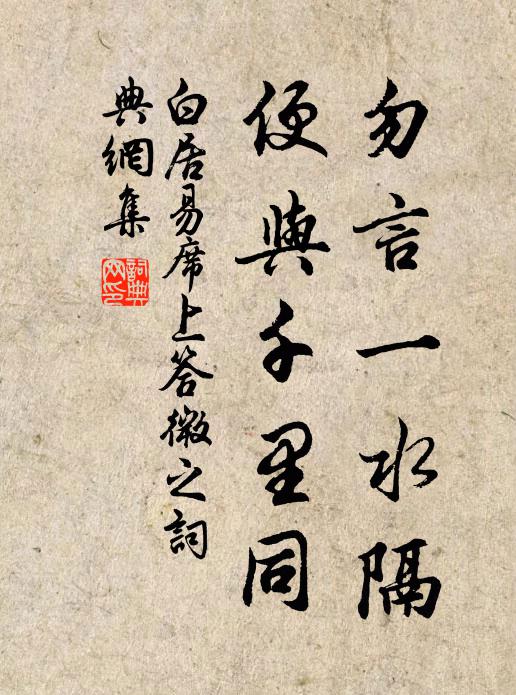 勿言一水隔
便與千里同
白居易席上答微之詞
典網集
詞典
网印